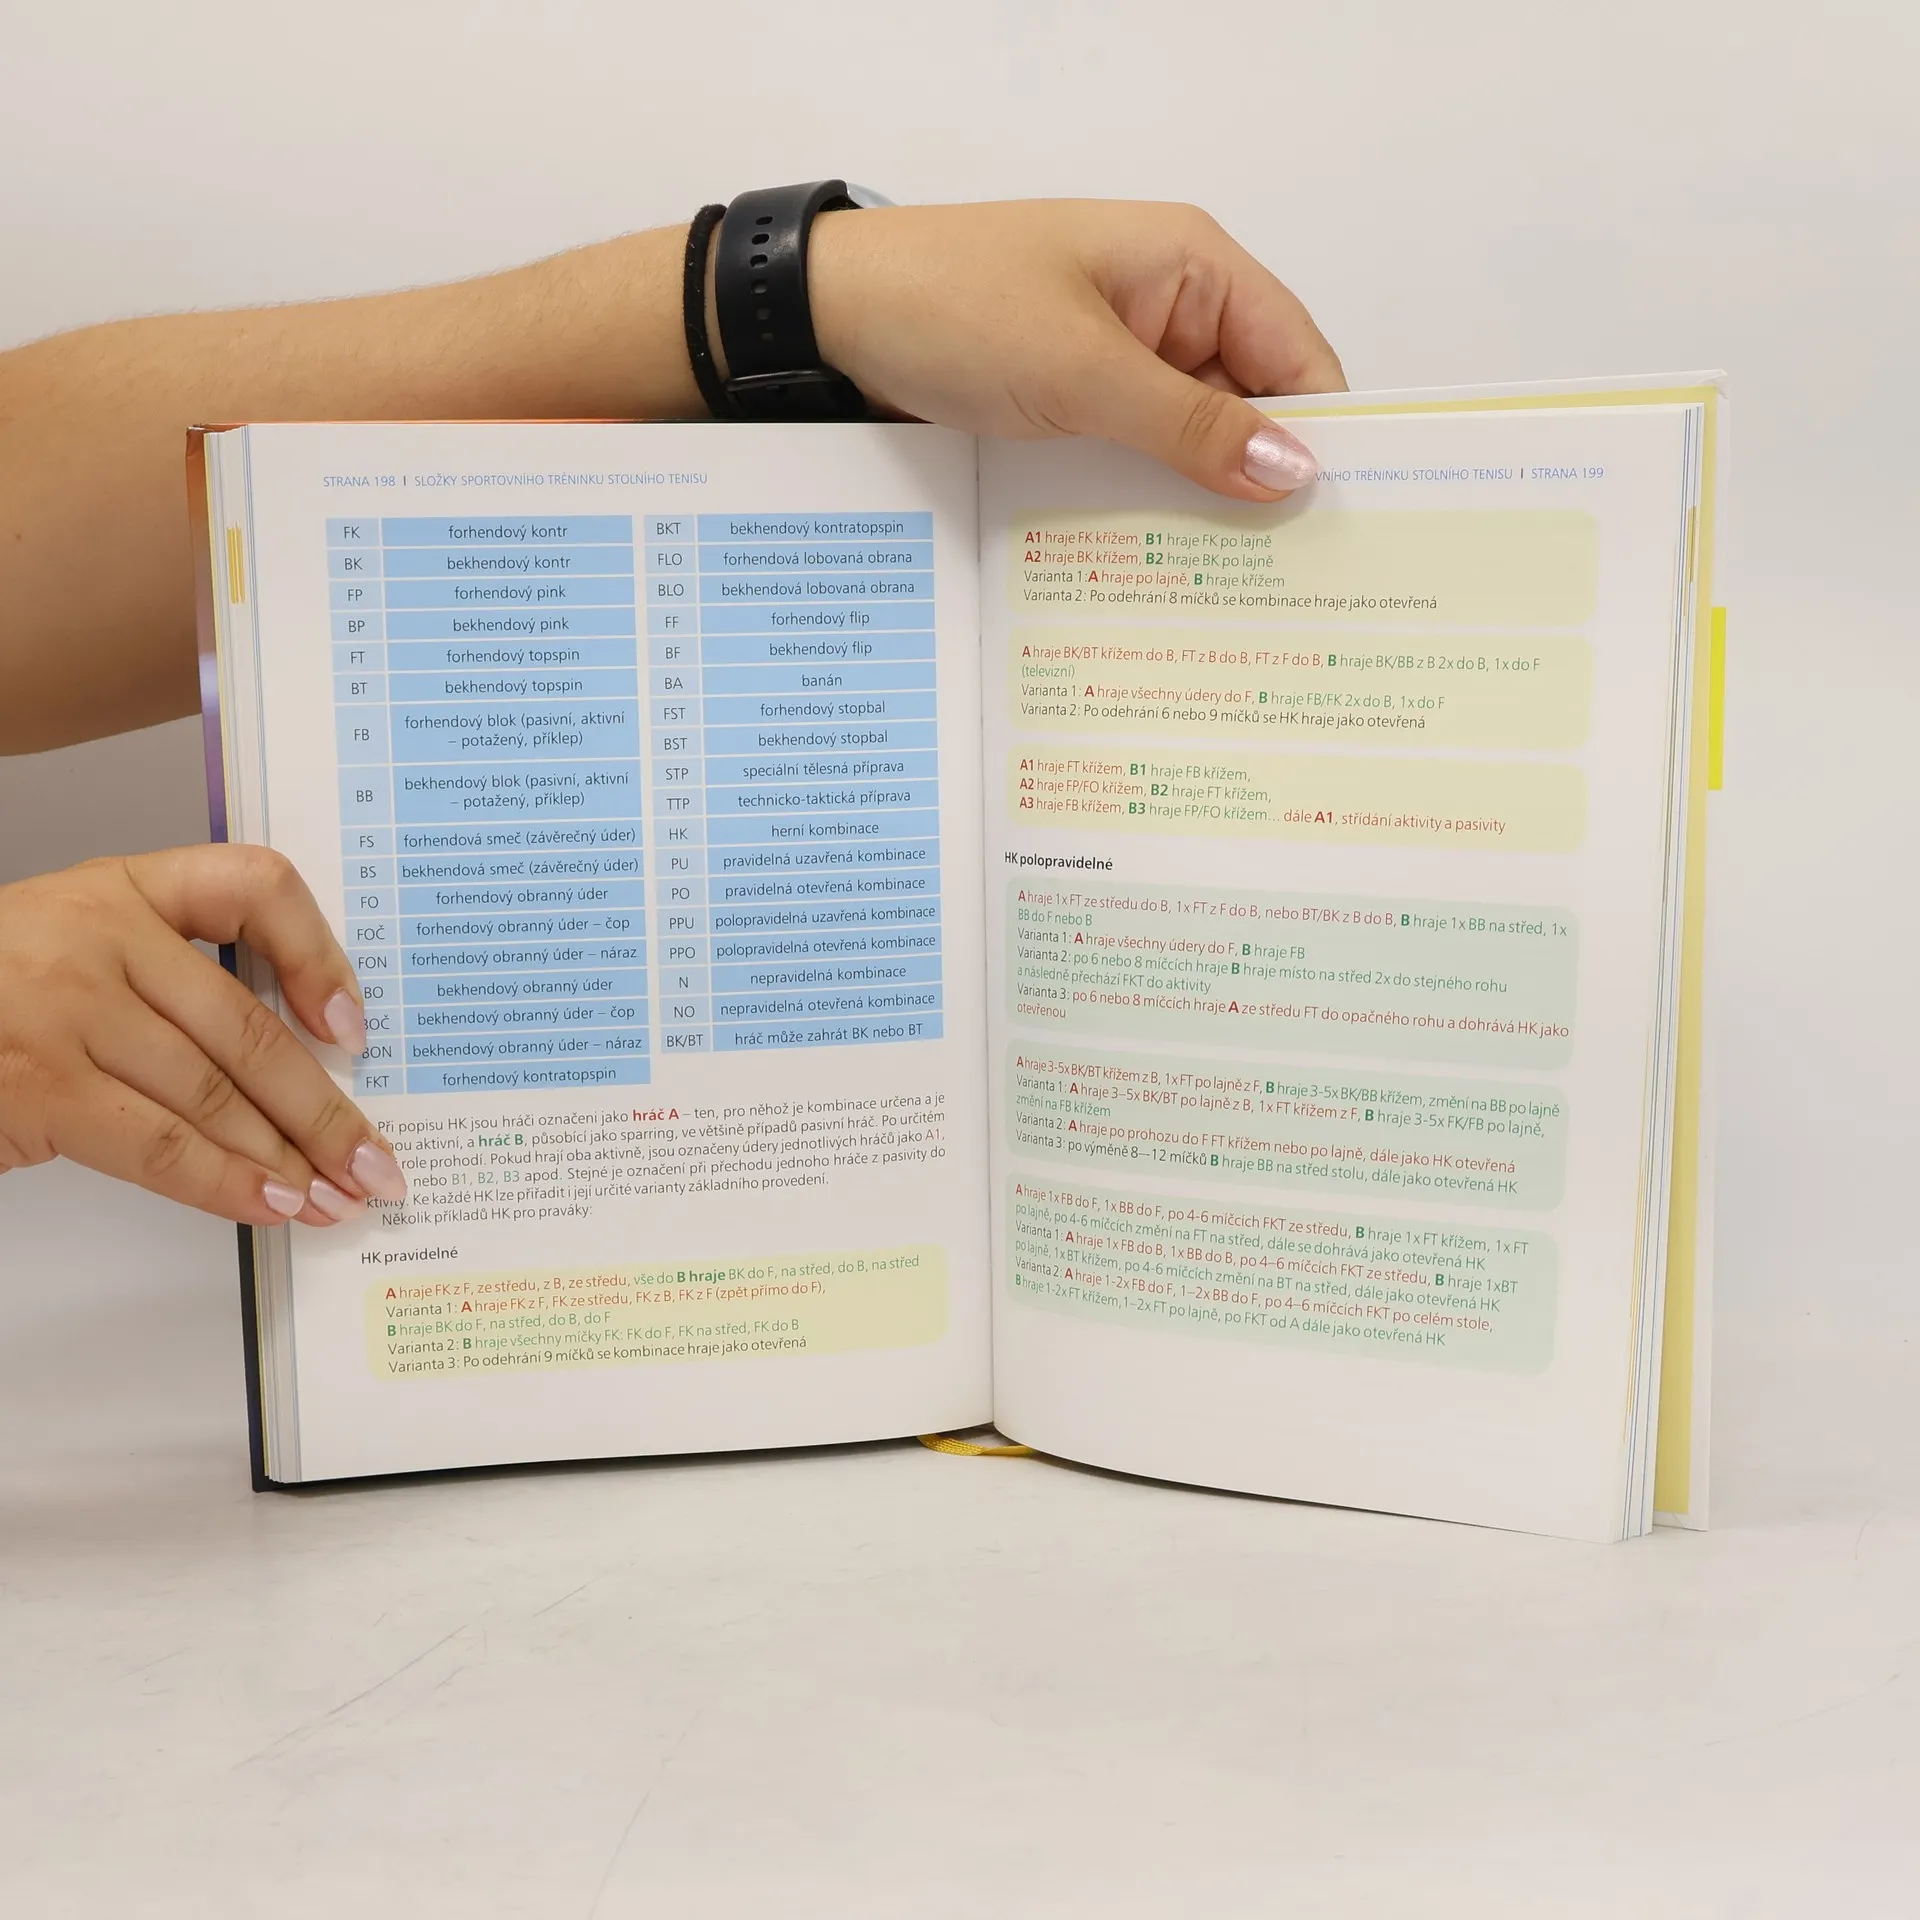 STRANA 198 I SLOŽKY SPORTOVNÍHO TRÉNINKU STOLNÍHO TENISU
FK forhendový kontr
BK bekhendový kontr
FP forhendový pink
BP bekhendový pink
FT forhendový topspin
BT bekhendový topspin
FB forhendový blok (pasivní, aktivní
– potažený, příklep)
BB bekhendový blok (pasivní, aktivní
– potažený, příklep)
FS forhendová smeč (závěrečný úder)
BS bekhendová smeč (závěrečný úder)
FO forhendový obranný úder
FOČ forhendový obranný úder – čop
FON forhendový obranný úder – náraz
BO bekhendový obranný úder
BOČ bekhendový obranný úder – čop
BON bekhendový obranný úder – náraz
FKT forhendový kontratopspin
BKT bekhendový kontratopspin
FLO forhendová lobovaná obrana
BLO bekhendová lobovaná obrana
FF forhendový flip
BF bekhendový flip
BA banán
FST forhendový stopbal
BST bekhendový stopbal
STP speciální tělesná příprava
TTP technicko-taktická příprava
HK herní kombinace
PU pravidelná uzavřená kombinace
PO pravidelná otevřená kombinace
PPU polopravidelná uzavřená kombinace
PPO polopravidelná otevřená kombinace
N nepravidelná kombinace
NO nepravidelná otevřená kombinace
BK/BT hráč může zahrát BK nebo BT
Při popisu HK jsou hráči označeni jako hráč A – ten, pro něhož je kombinace určena a je
aktivní, a hráč B, působící jako sparring, ve většině případů pasivní hráč. Po určitém
role prohodí. Pokud hrají oba aktivně, jsou označeny údery jednotlivých hráčů jako A1,
nebo B1, B2, B3 apod. Stejné je označení při přechodu jednoho hráče z pasivity do
ktivity. Ke každé HK lze přiřadit i její určité varianty základního provedení.
Několik příkladů HK pro praváky:
HK pravidelné
A hraje FK z F, ze středu, z B, ze středu, vše do B hraje BK do F, na střed, do B, na střed
Varianta 1: A hraje FK z F, FK ze středu, FK z B, FK z F (zpět přímo do F),
B hraje BK do F, na střed, do B, do F
Varianta 2: B hraje všechny míčky FK: FK do F, FK na střed, FK do B
Varianta 3: Po odehrání 9 míčků se kombinace hraje jako otevřená
VNÍHO TRÉNINKU STOLNÍHO TENISU I STRANA 199
A1 hraje FK křížem, B1 hraje FK po lajně
A2 hraje BK křížem, B2 hraje BK po lajně
Varianta 1: A hraje po lajně, B hraje křížem
Varianta 2: Po odehrání 8 míčků se kombinace hraje jako otevřená
A hraje BK/BT křížem do B, FT z B do B, FT z F do B, B hraje BK/BB z B 2x do B, 1x do F
(televizní)
Varianta 1: A hraje všechny údery do F, B hraje FB/FK 2x do B, 1x do F
Varianta 2: Po odehrání 6 nebo 9 míčků se HK hraje jako otevřená
A1 hraje FT křížem, B1 hraje FB křížem,
A2 hraje FP/FO křížem, B2 hraje FT křížem,
A3 hraje FB křížem, B3 hraje FP/FO křížem... dále A1, střídání aktivity a pasivity
HK polopravidelné
A hraje 1x FT ze středu do B, 1x FT z F do B, nebo BT/BK z B do B, B hraje 1x BB na střed, 1x
BB do F nebo B
Varianta 1: A hraje všechny údery do F, B hraje FB
Varianta 2: po 6 nebo 8 míčcích hraje B hraje místo na střed 2x do stejného rohu
a následně přechází FKT do aktivity
Varianta 3: po 6 nebo 8 míčcích hraje A ze středu FT do opačného rohu a dohrává HK jako
otevřenou
A hraje 3-5x BK/BT křížem z B, 1x FT po lajně z F, B hraje 3-5x BK/BB křížem, změní na BB po lajně
Varianta 1: A hraje 3–5x BK/BT po lajně z B, 1x FT křížem z F, B hraje 3-5x FK/FB po lajně,
změní na FB křížem
Varianta 2: A hraje po prohozu do F FT křížem nebo po lajně, dále jako HK otevřená
Varianta 3: po výměně 8–-12 míčků B hraje BB na střed stolu, dále jako otevřená HK
A hraje 1x FB do F, 1x BB do F, po 4-6 míčcích FKT ze středu, B hraje 1x FT křížem, 1x FT
po lajně, po 4-6 míčcích změní na FT na střed, dále se dohrává jako otevřená HK
Varianta 1: A hraje 1x FB do B, 1x BB do B, po 4–6 míčcích FKT ze středu, B hraje 1xBT
po lajně, 1x BT křížem, po 4-6 míčcích změní na BT na střed, dále jako otevřená HK
Varianta 2: A hraje 1-2x FB do F, 1–2x BB do F, po 4–6 míčcích FKT po celém stole,
B hraje 1-2x FT křížem, 1–2x FT po lajně, po FKT od A dále jako otevřená HK